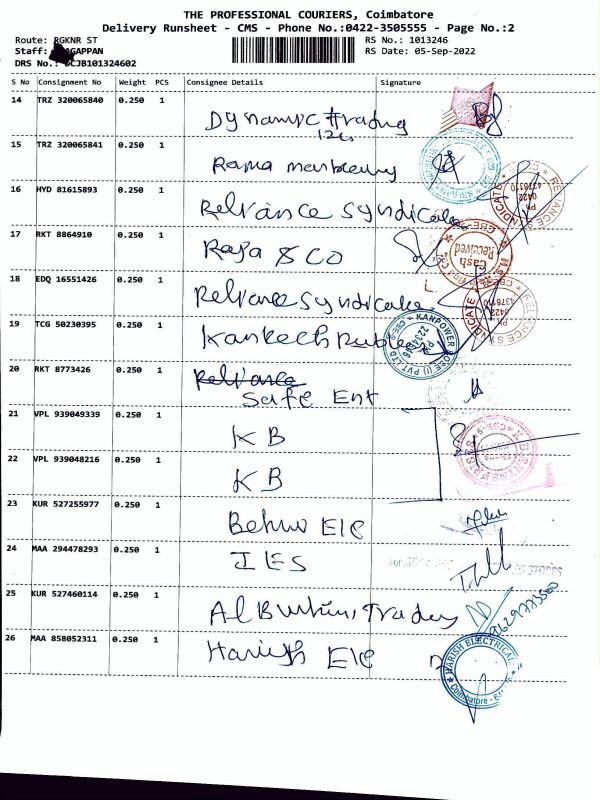 THE PROFESSIONAL COURIERS, Coimbatore
Delivery Runsheet - CMS - Phone No.:0422-3505555 - Page No.:2
Route: RGKNR ST
RS No.: 1013246
Staff: AGAPPAN
RS Date: 05-Sep-2022
DRS No.: CJB101324602
S No Consignment No Weight PCS Consignee Details Signature
14 TRZ 320065840 0.250 1 Dynamic Trading
15 TRZ 320065841 0.250 1 Rama
16 HYD 81615893 0.250 1 Reliance Syndicate
17 RKT 8864910 0.250 1 Raja & CO
Cash Received
18 EDQ 16551426 0.250 1 Reliance Syndicate
19 TCG 50230395 0.250 1
KANPOWER
20 RKT 8773426 0.250 1 Reliance
Safe Ent
21 VPL 939049339 0.250 1 KB
22 VPL 939048216 0.250 1 KB
23 KUR 527255977 0.250 1 Ele
24 MAA 294478293 0.250 1 IES
25 KUR 527460114 0.250 1 Al Traders
9629773500
26 MAA 858052311 0.250 1 Harish Ele
HARISH ELECTRICAL
Coimbatore